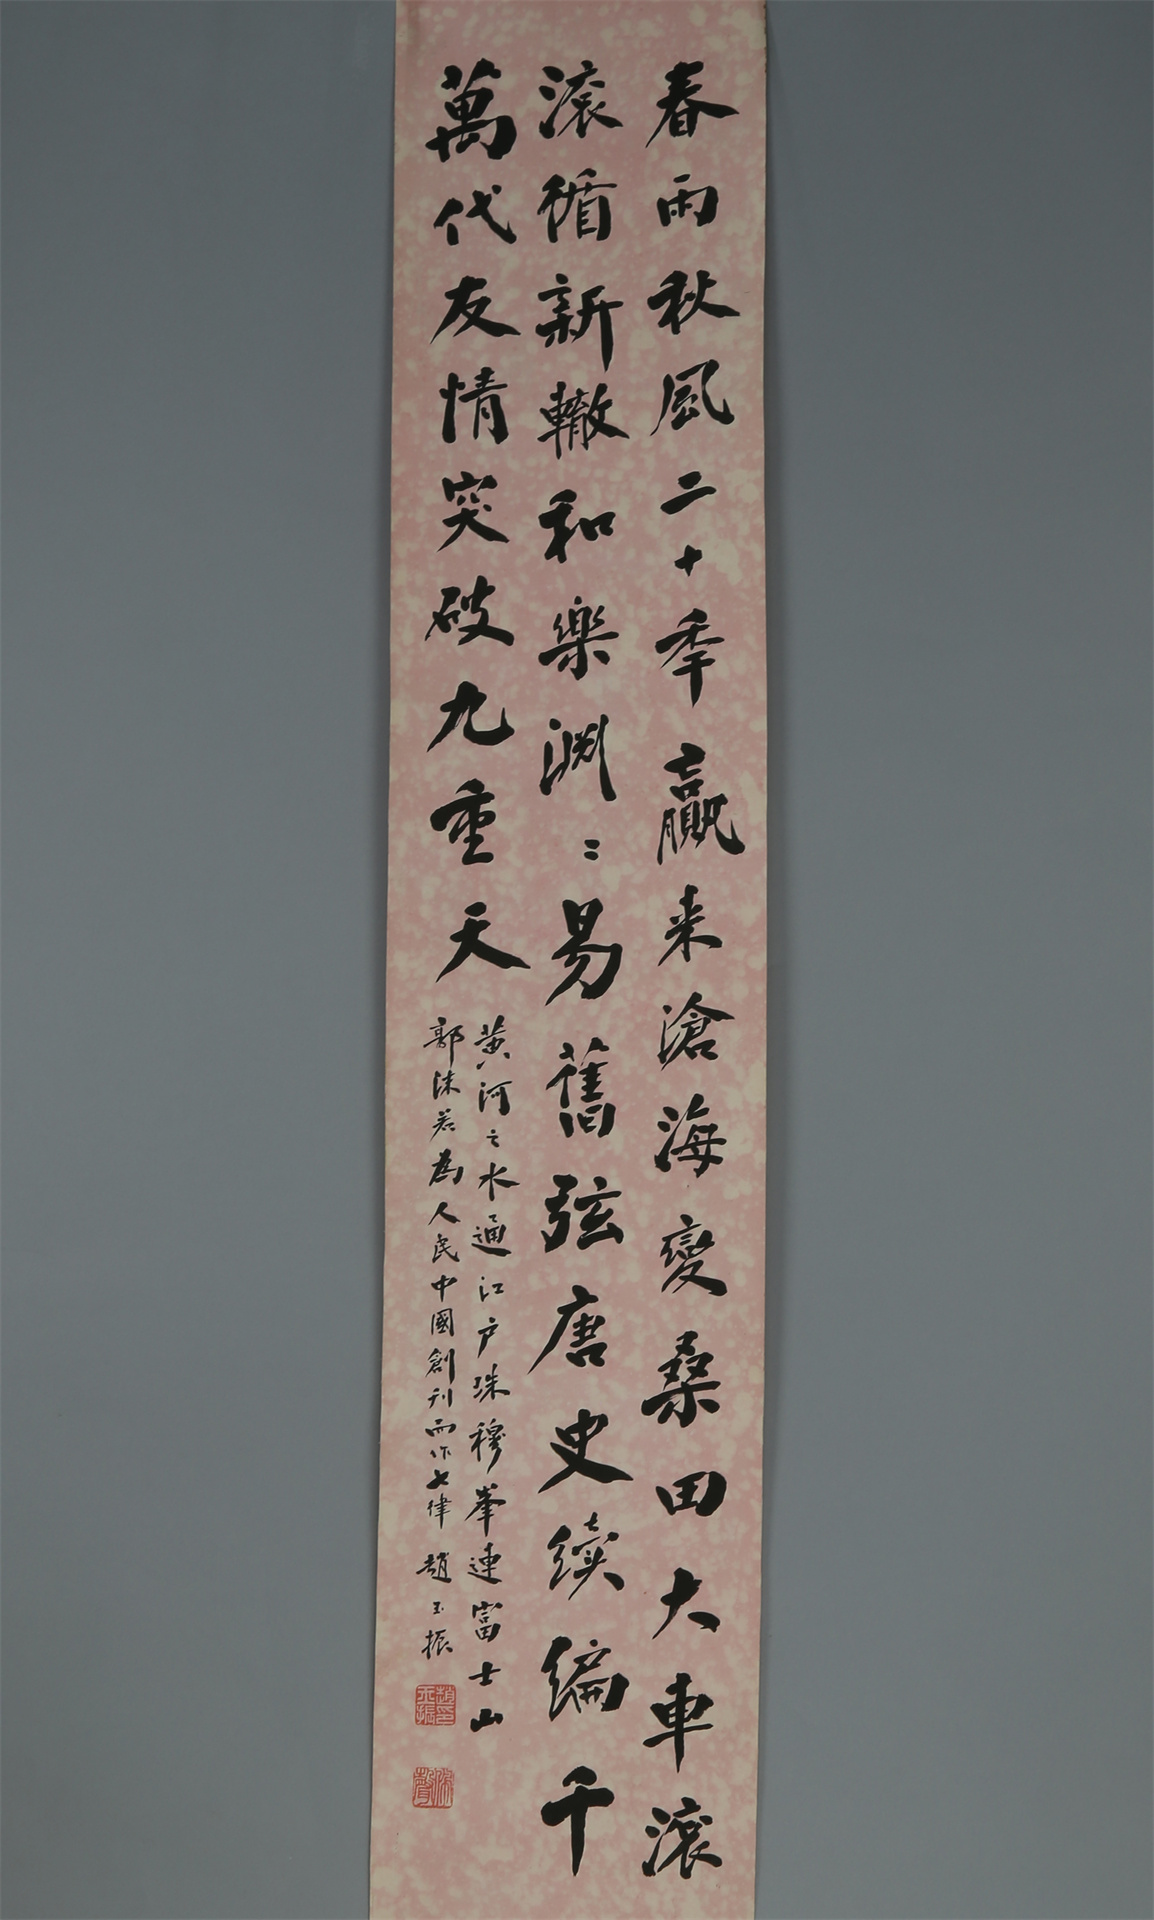 春雨秋風二十季贏来滄海變桑田大車滾
滾循新轍和樂淵〻易舊弦唐史续编千
萬代友情突破九重天
黄河之水通江户珠穆峯連富士山
郭沫若為人民中國創刊而作七律 趙玉振